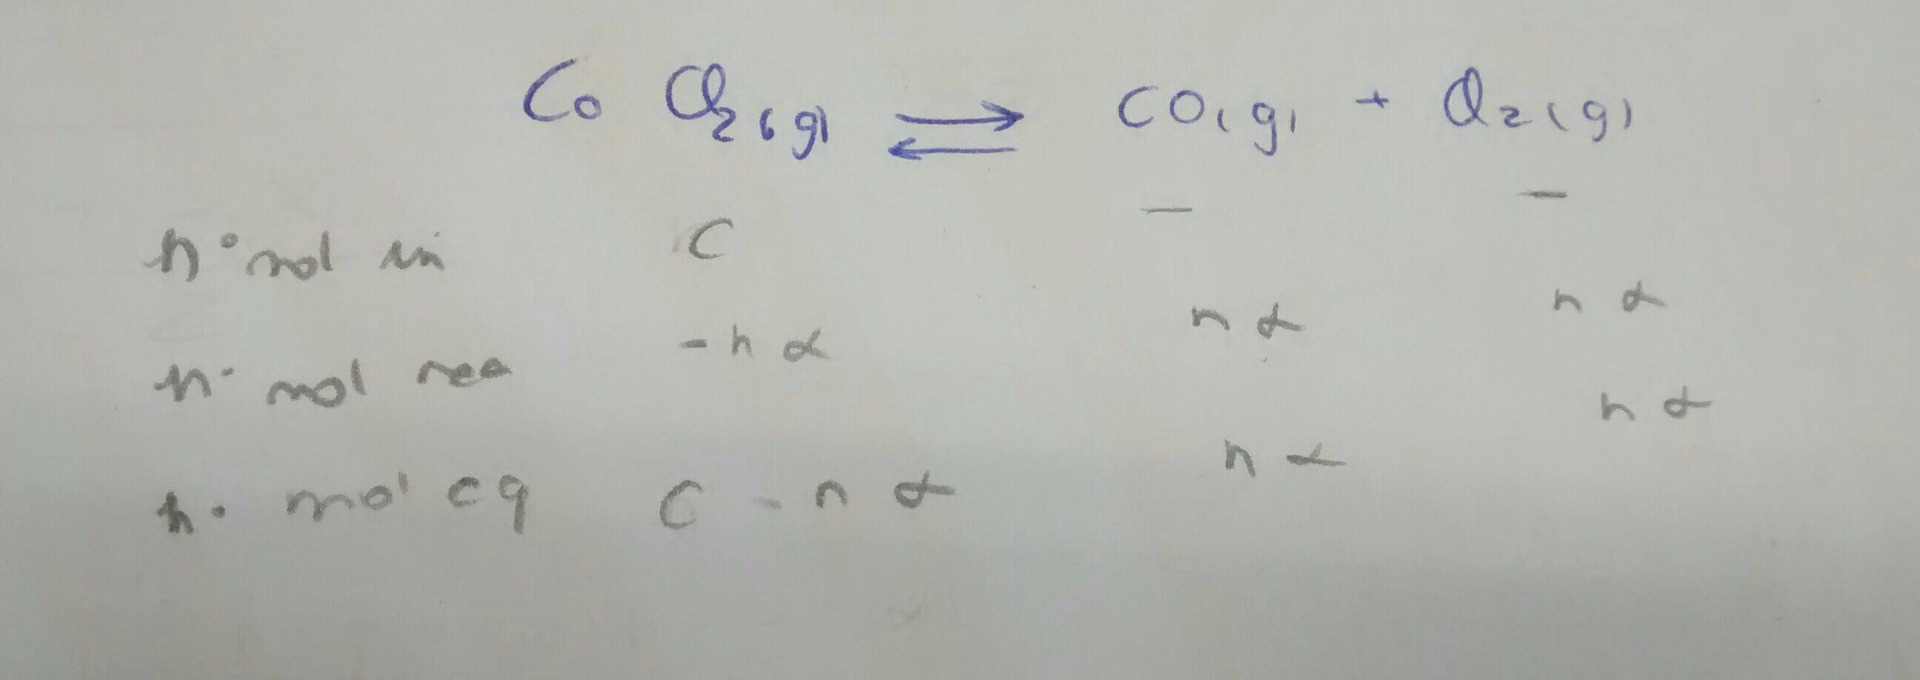 Co Cl2(g) ⇌ CO(g) + Cl2(g)
n° mol in C — —
n° mol rea -nα nα nα
n° mol eq C - nα nα nα